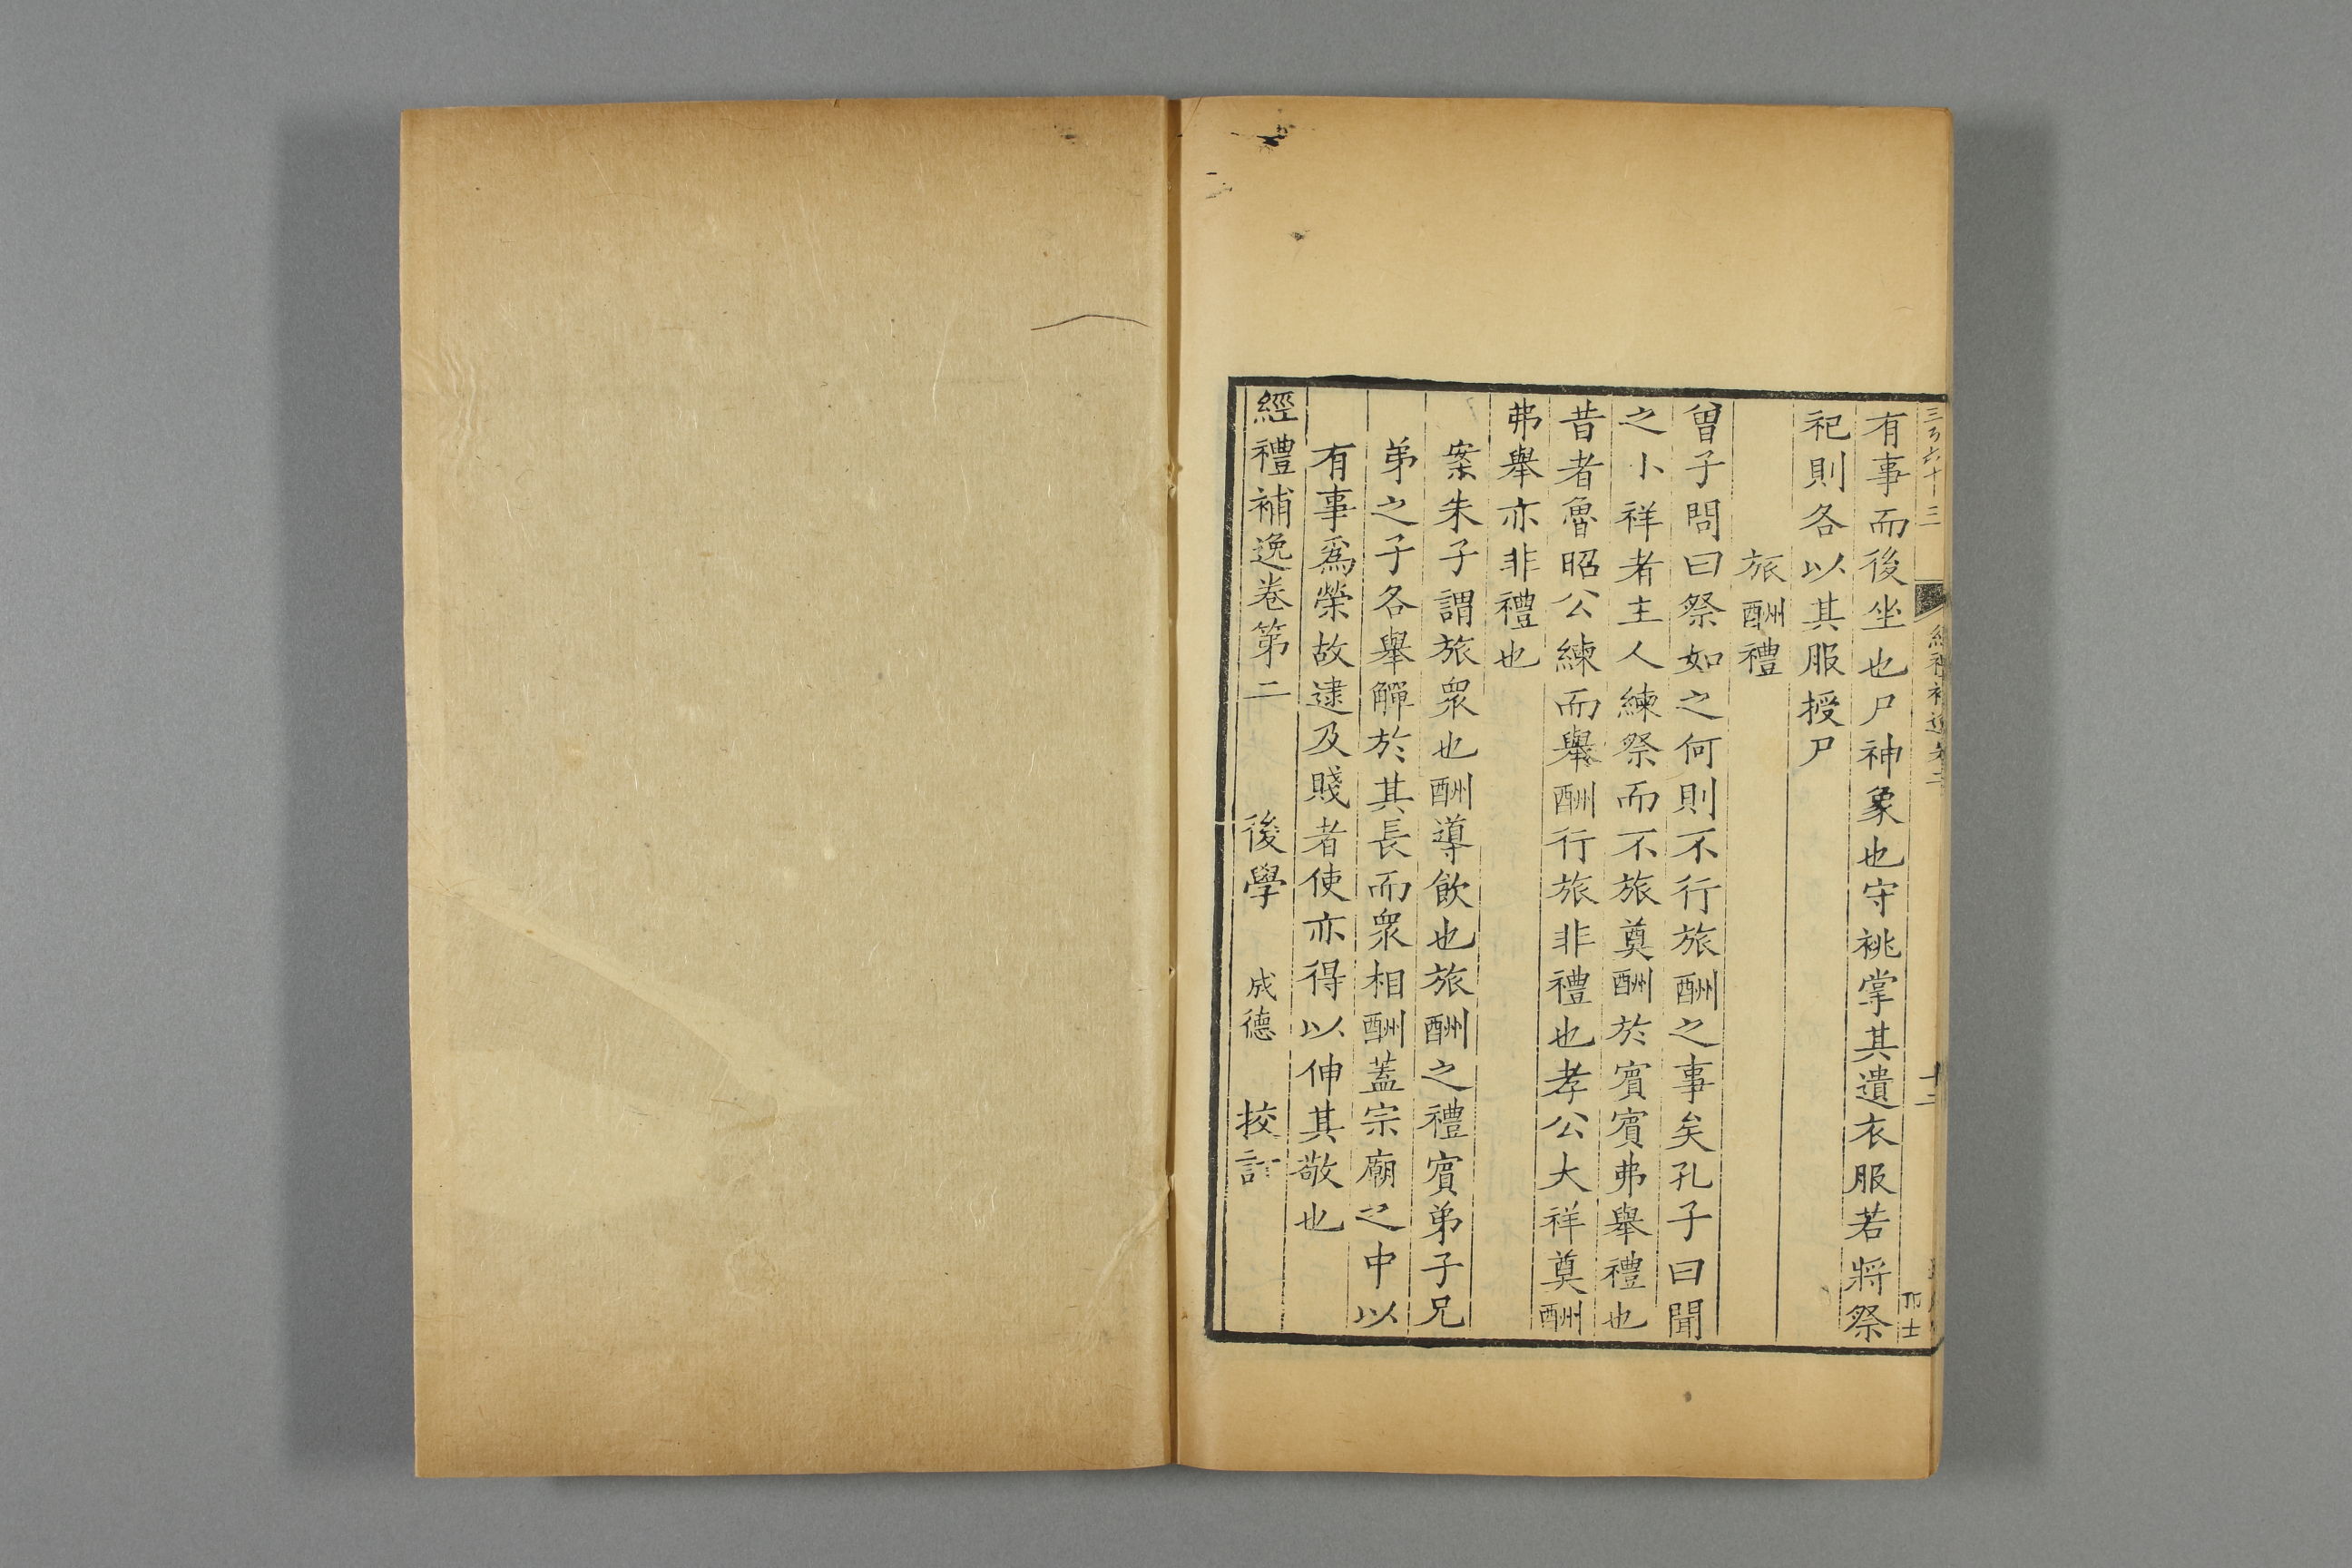 有事而後坐也尸神象也守祧掌其遺衣服若將祭
祀則各以其服授尸
旅酬禮
曾子問曰祭如之何則不行旅酬之事矣孔子曰聞
之小祥者主人練祭而不旅奠酬於賓賓弗舉禮也
昔者魯昭公練而舉酬行旅非禮也孝公大祥奠酬
弗舉亦非禮也
案朱子謂旅眾也酬導飲也旅酬之禮賓弟子兄
弟之子各舉觶於其長而眾相酬蓋宗廟之中以
有事爲榮故逮及賤者使亦得以伸其敬也
經禮補逸卷第二 後學 成德 挍訂